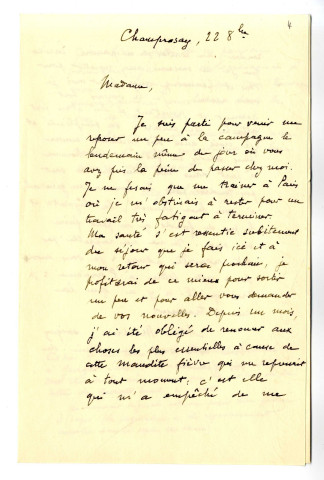 4
Champrosay, 22 8bre
Madame,
Je suis parti pour venir me
reposer un peu à la campagne le
lendemain même du jour où vous
avez pris la peine de passer chez moi.
Je ne fesais que me traîner à Paris
où je m'obstinais à rester pour un
travail très fatigant à terminer.
Ma santé s'est ressentie subitement
du séjour que je fais ici et à
mon retour qui sera prochain, je
profiterai de ce mieux pour sortir
un peu et pour aller vous demander
de vos nouvelles. Depuis un mois,
j'ai été obligé de renoncer aux
choses les plus essentielles à cause de
cette maudite fièvre qui me reprenait
à tout moment: c'est elle
qui m'a empêché de me